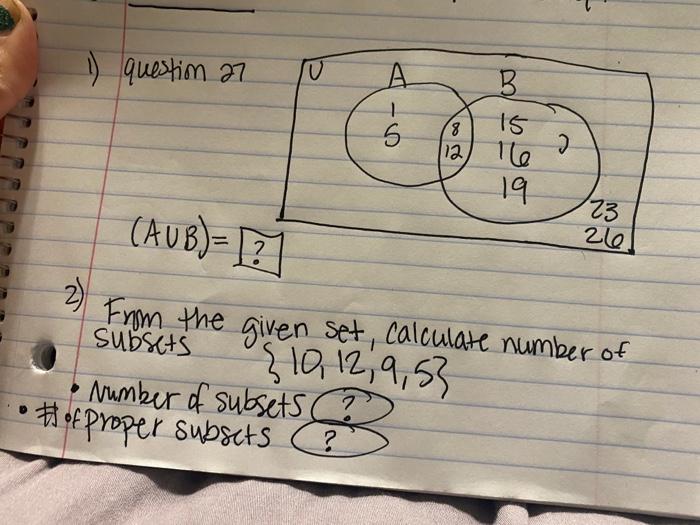 1) question 27
U A B
1
5
8
12
15
16
19
23
26
(AUB)= ?
2)
From the given set, calculate number of
subsets
{10, 12, 9, 5}
• Number of subsets ?
• # of proper subsets ?